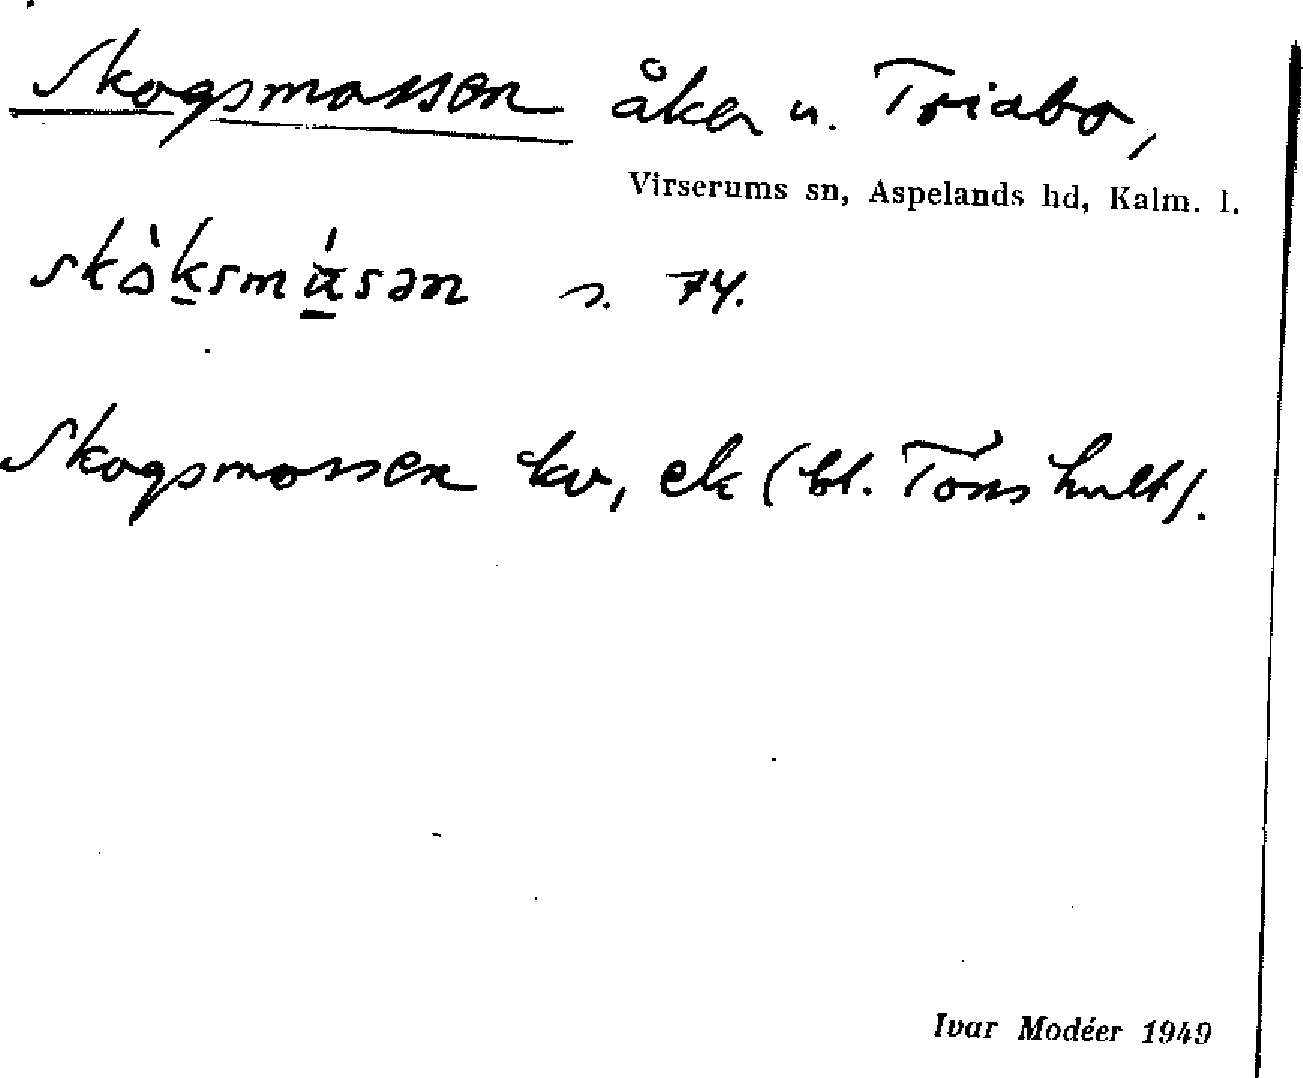 Skogsmossen åker u. Triabo,
Virserums sn, Aspelands hd, Kalm. l.
s. 74.
Skogsmossen kv, ek (bl. Tönshult).
Ivar Modéer 1949